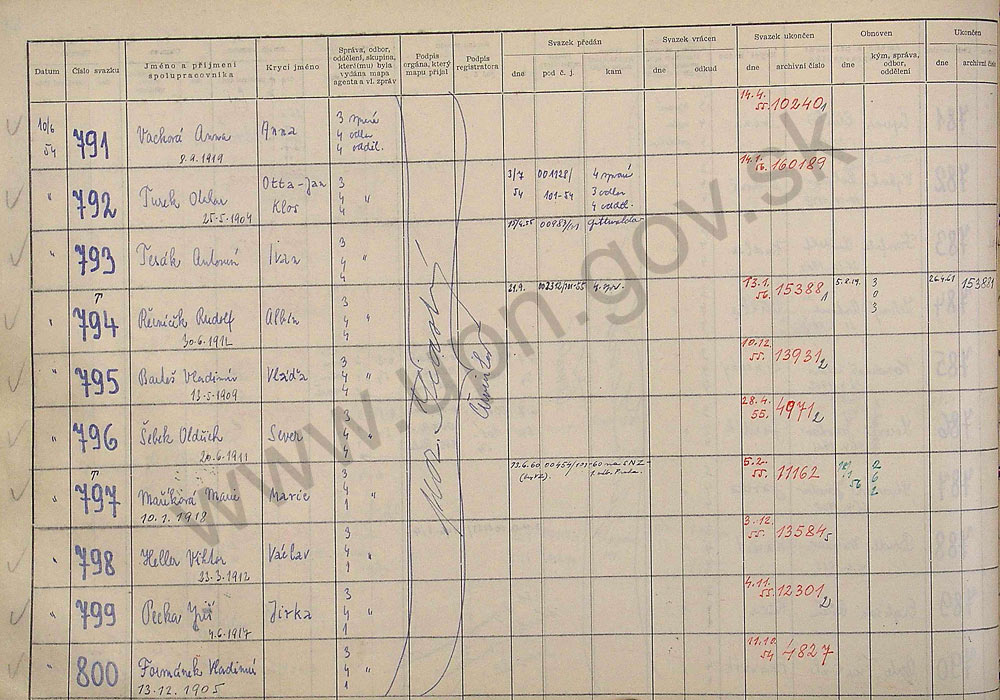 Datum
Číslo svazku
Jméno a příjmení
spolupracovníka
Krycí jméno
Správa, odbor,
oddělení, skupina,
které(mu) byla
vydána mapa
agenta a vl. zpráv
Podpis
orgána, který
mapu přijal
Podpis
registratora
Svazek předán
dne
pod č. j.
kam
Svazek vrácen
dne
odkud
Svazek ukončen
dne
archivní číslo
Obnoven
dne
kým, správa,
odbor,
oddělení
Ukončen
dne
archivní číslo
10/6
54
791
Vachová Anna
8.9.1919
Anna
3 správě
4 odbor
4 odděl.
14.4.
55.
10240
1
"
792
Turek Otakar
25.5.1904
Otta-Jan
Klos
3
4 "
4
3/7
54
001128/
101-54
4 správě
3 odbor
4 odděl.
14.1.
56.
160189
"
793
Tesák Antonín
Ivan
3
4 "
4
"
794
Řezníček Rudolf
30.6.1912
Albín
3
4 "
4
21.9.
4. spr.
13.1.
56.
15388
1
3
0
3
26.4.61
153881
"
795
Bartoš Vladimír
13.5.1909
Vláďa
3
4 "
4
10.12.
55.
13931
2
"
796
Šebek Oldřich
20.6.1911
Sever
3
4 "
4
28.4.
55.
4971
2
"
797
Maříková Marie
10.1.1918
Marie
3
4 "
1
5.2.
55.
11162
56
2
6
2
"
798
Heller Viktor
23.3.1912
Václav
3
4 "
1
3.12.
55.
13584
5
"
799
Pecka Jiří
4.6.1917
Jirka
3
4 "
1
4.11.
55.
12301
2
"
800
Formánek Vladimír
13.12.1905
3
4 "
1
11.10.
54
4827
www.upn.gov.sk